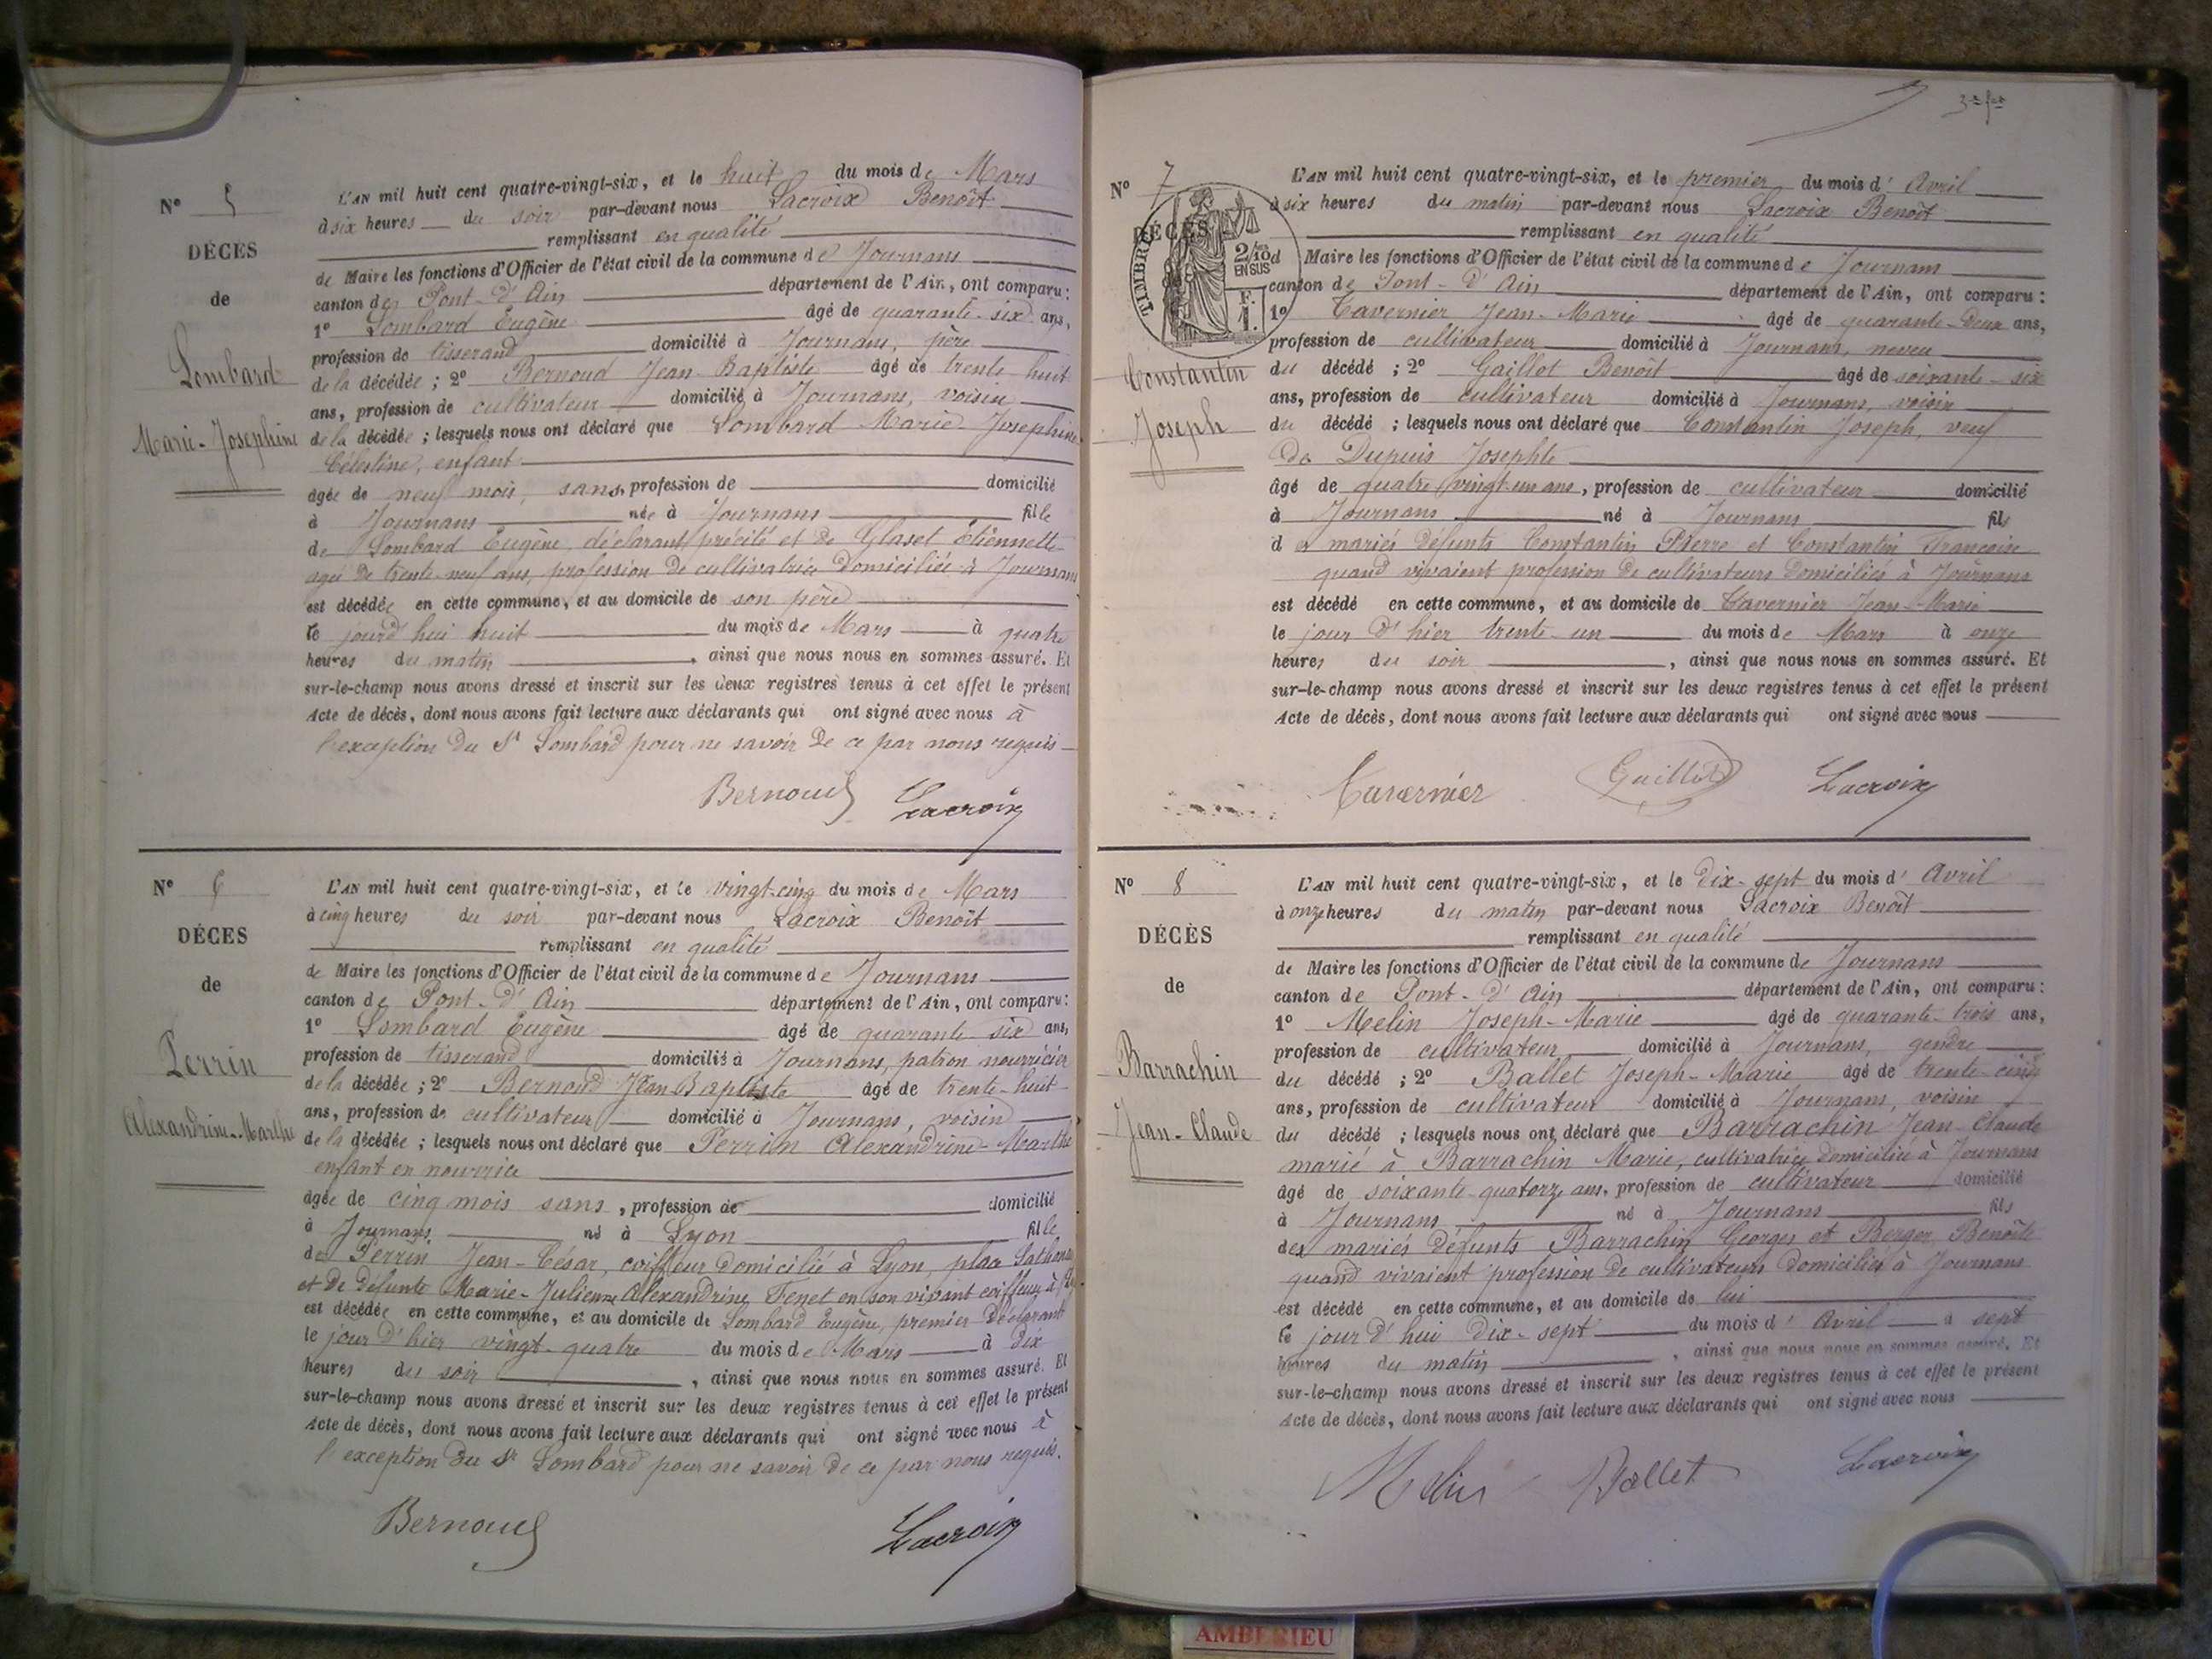 Nº 5
DÉCES
de
Lombard
Marie-Josephine
L'AN mil huit cent quatre-vingt-six, et le huit du mois de Mars
à six heures du soir par-devant nous Lacroix Benoît
remplissant en qualité
de Maire les fonctions d'Officier de l'état civil de la commune de Journans
canton de Pont-d'Ain département de l'Ain, ont comparu:
1º Lombard Eugène âgé de quarante-six ans,
profession de tisserand domicilié à Journans, père
de la décédée; 2º Bernoud Jean Baptiste âgé de trente-huit
ans, profession de cultivateur domicilié à Journans, voisin
de la décédée; lesquels nous ont déclaré que Lombard Marie-Josephine
Célestine, enfant
âgée de neuf mois, sans, profession de domicilié
à Journans née à Journans fille
de Lombard Eugène, déclarant précité et de Étiennette
agée de trente-neuf ans, profession de cultivatrice domiciliée à Journans
est décédée en cette commune, et au domicile de son père
le jourd'hui huit du mois de Mars à quatre
heures du matin, ainsi que nous nous en sommes assuré. Et
sur-le-champ nous avons dressé et inscrit sur les deux registres tenus à cet effet le présent
Acte de décès, dont nous avons fait lecture aux déclarants qui ont signé avec nous à
l'exception du Sr Lombard pour ne savoir de ce par nous requis
Bernoud Lacroix
Nº 6
DÉCES
de
Perrin
Alexandrine-Marthe
L'AN mil huit cent quatre-vingt-six, et le vingt-cinq du mois de Mars
à cinq heures du soir par-devant nous Lacroix Benoît
remplissant en qualité
de Maire les fonctions d'Officier de l'état civil de la commune de Journans
canton de Pont-d'Ain département de l'Ain, ont comparu:
1º Lombard Eugène âgé de quarante-six ans,
profession de tisserand domicilié à Journans, patron nourricier
de la décédée; 2º Bernoud Jean Baptiste âgé de trente-huit
ans, profession de cultivateur domicilié à Journans, voisin
de la décédée; lesquels nous ont déclaré que Perrin Alexandrine-Marthe
enfant en nourrice
âgée de cinq mois sans, profession de domicilié
à Journans né à Lyon fille
de Perrin Jean-César, coiffeur domicilié à Lyon, place Sathonay
et de défunte Marie-Julienne Alexandrine Fenet en son vivant coiffeuse à
est décédée en cette commune, et au domicile de Lombard Eugène, premier déclarant
le jour d'hier vingt-quatre du mois de Mars à dix
heures du soir, ainsi que nous nous en sommes assuré. Et
sur-le-champ nous avons dressé et inscrit sur les deux registres tenus à cet effet le présent
Acte de décès, dont nous avons fait lecture aux déclarants qui ont signé avec nous à
l'exception du Sr Lombard pour ne savoir de ce par nous requis.
Bernoud Lacroix
Nº 7
DÉCÈS
TIMBRE
2/10d
EN SUS
F.
1.
Constantin
Joseph
L'AN mil huit cent quatre-vingt-six, et le premier du mois d'Avril
à six heures du matin par-devant nous Lacroix Benoît
remplissant en qualité
Maire les fonctions d'Officier de l'état civil de la commune de Journans
canton de Pont-d'Ain département de l'Ain, ont comparu:
1º Tavernier Jean-Marie âgé de quarante-deux ans,
profession de cultivateur domicilié à Journans, neveu
du décédé; 2º Gaillot Benoît âgé de soixante-six
ans, profession de cultivateur domicilié à Journans, voisin
du décédé; lesquels nous ont déclaré que Constantin Joseph, veuf
de Dupuis Josephte
âgé de quatre vingt-un ans, profession de cultivateur domicilié
à Journans né à Journans fils
des mariés défunts Constantin Pierre et Constantin Françoise
quand vivaient profession de cultivateurs domiciliés à Journans
est décédé en cette commune, et au domicile de Tavernier Jean-Marie
le jour d'hier trente-un du mois de Mars à onze
heures du soir, ainsi que nous nous en sommes assuré. Et
sur-le-champ nous avons dressé et inscrit sur les deux registres tenus à cet effet le présent
Acte de décès, dont nous avons fait lecture aux déclarants qui ont signé avec nous
Tavernier Gaillot Lacroix
Nº 8
DÉCÈS
de
Barrachin
Jean-Claude
L'AN mil huit cent quatre-vingt-six, et le dix-sept du mois d'Avril
à onze heures du matin par-devant nous Lacroix Benoît
remplissant en qualité
de Maire les fonctions d'Officier de l'état civil de la commune de Journans
canton de Pont-d'Ain département de l'Ain, ont comparu:
1º Melin Joseph-Marie âgé de quarante-trois ans,
profession de cultivateur domicilié à Journans, gendre
du décédé; 2º Ballet Joseph-Marie âgé de trente-cinq
ans, profession de cultivateur domicilié à Journans, voisin
du décédé; lesquels nous ont déclaré que Barrachin Jean-Claude
marié à Barrachin Marie, cultivatrice domiciliée à Journans
âgé de soixante-quatorze ans, profession de cultivateur domicilié
à Journans né à Journans fils
des mariés défunts Barrachin Georges et Berger Benoîte
quand vivaient profession de cultivateurs domiciliés à Journans
est décédé en cette commune, et au domicile de lui
le jour d'hui dix-sept du mois d'Avril à sept
heures du matin, ainsi que nous nous en sommes assuré. Et
sur-le-champ nous avons dressé et inscrit sur les deux registres tenus à cet effet le présent
Acte de décès, dont nous avons fait lecture aux déclarants qui ont signé avec nous
Melin Ballet Lacroix
AMBERIEU